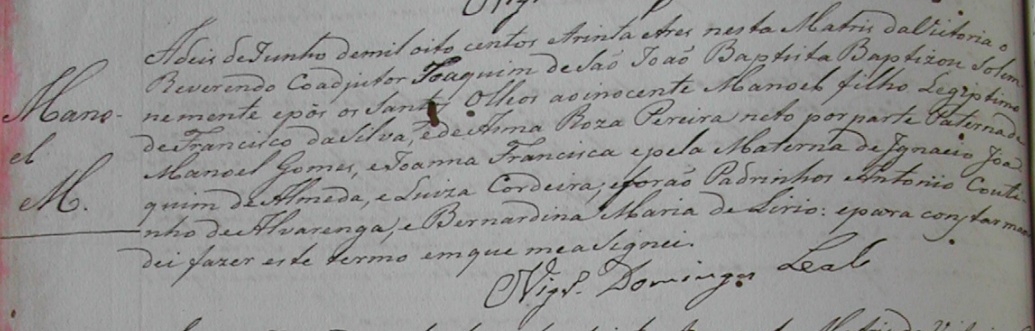 Adeis de Junho demil oito centos etrinta etres nesta Matris da Victoria o
Reverendo Coadjutor Joaquim de São João Baptista Baptizou Solem
Mano- nemente epôs os Santos Olleos ao inocente Manoel filho Legiptimo
el de Francisco da Silva, e de Anna Roza Pereira neto por parte Paterna de
M. Manoel Gomes, e Joanna Francisca e pela Materna de Ignacio Joa
quim de Almeda, e Luiza Cordeira; eforão Padrinhos Antonio Couti
nho de Alvarenga, e Bernardina Maria de Lirio: epara constar man
dei fazer este termo em que me aSignei.
Vigr. Domingos Leal